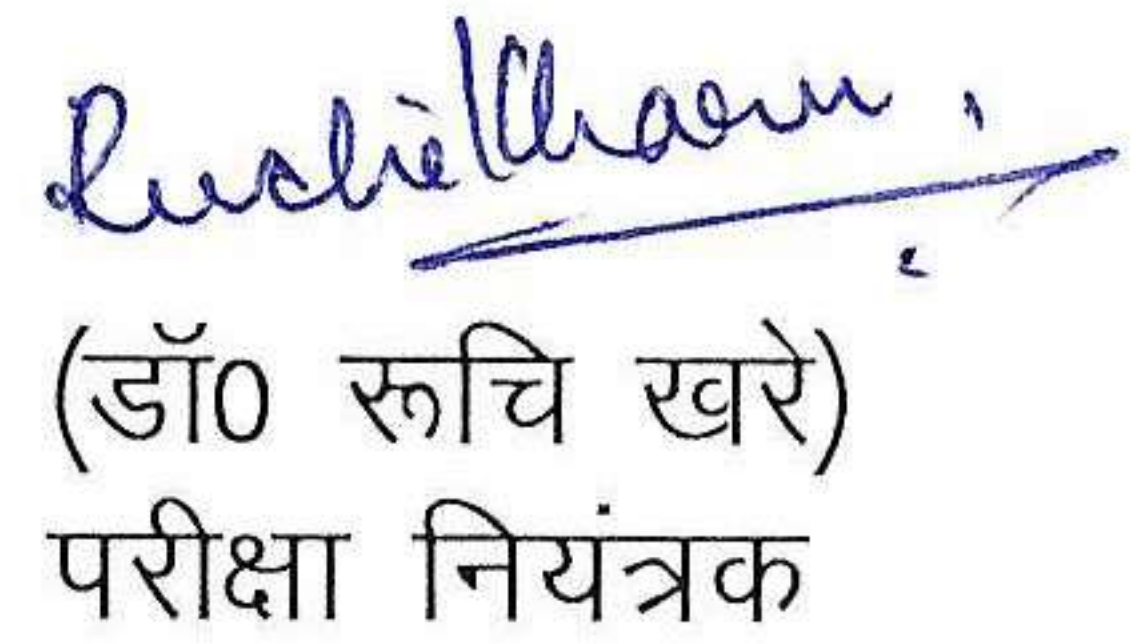 (डॉ0 रूचि खरे)
परीक्षा नियंत्रक